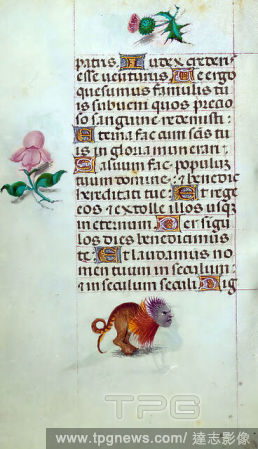 patris. Iudex crederis
esse uenturus. Te ergo
quesumus famulis tu
is subueni quos precio
so sanguine redemisti.
Eterna fac cum sctis tu
is in gloria munerari.
Saluum fac populum
tuum domine: et benedic
hereditati tue. Et rege
eos et extolle illos usqꝫ
in eternum. Per singu
los dies benedicimus
te. Et laudamus no
men tuum in seculum
et in seculum seculi. Dig
TPG
www.tpgnews.com / 達志影像